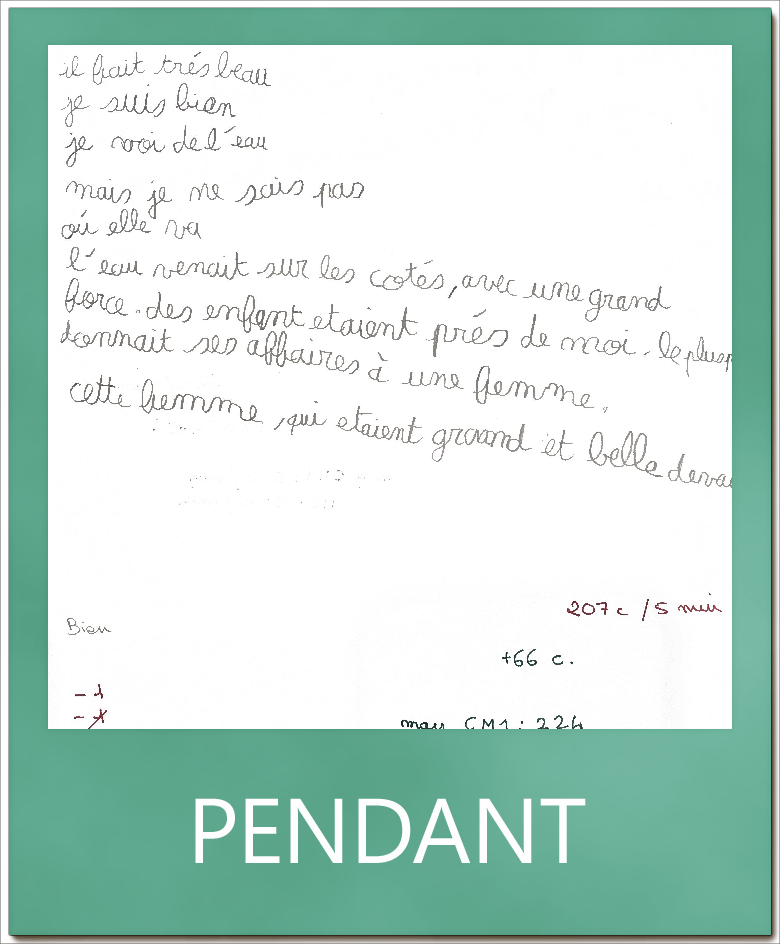 il frait trés beau
je suis bien
je voi de l'eau
mais je ne sais pas
où elle va
l'eau venait sur les cotés, avec une grand
force. des enfant etaient prés de moi. le plus
donnait ses affaires à une femme.
cette hemme, qui etaient graand et belle devai
207 c / 5 min
Bien
+66 c.
- 1
- 1
moy CM1: 224
PENDANT